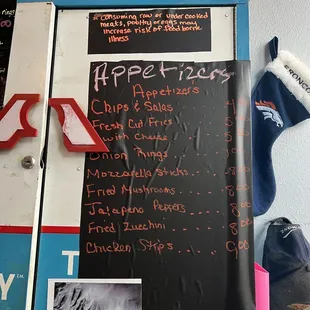 * consuming raw or under cooked
meats, poultry or eggs may
increase risk of food borne
illness
Appetizers
Appetizers
Chips & Salsa
Fresh Cut Fries
with Cheese
Onion Rings
Mozzarella Sticks... 8.00
Fried Mushrooms.... 8.00
Jalapeno Peppers.... 8.00
Fried Zucchini...... 8.00
Chicken Strips....
BRONCOS
T
Y